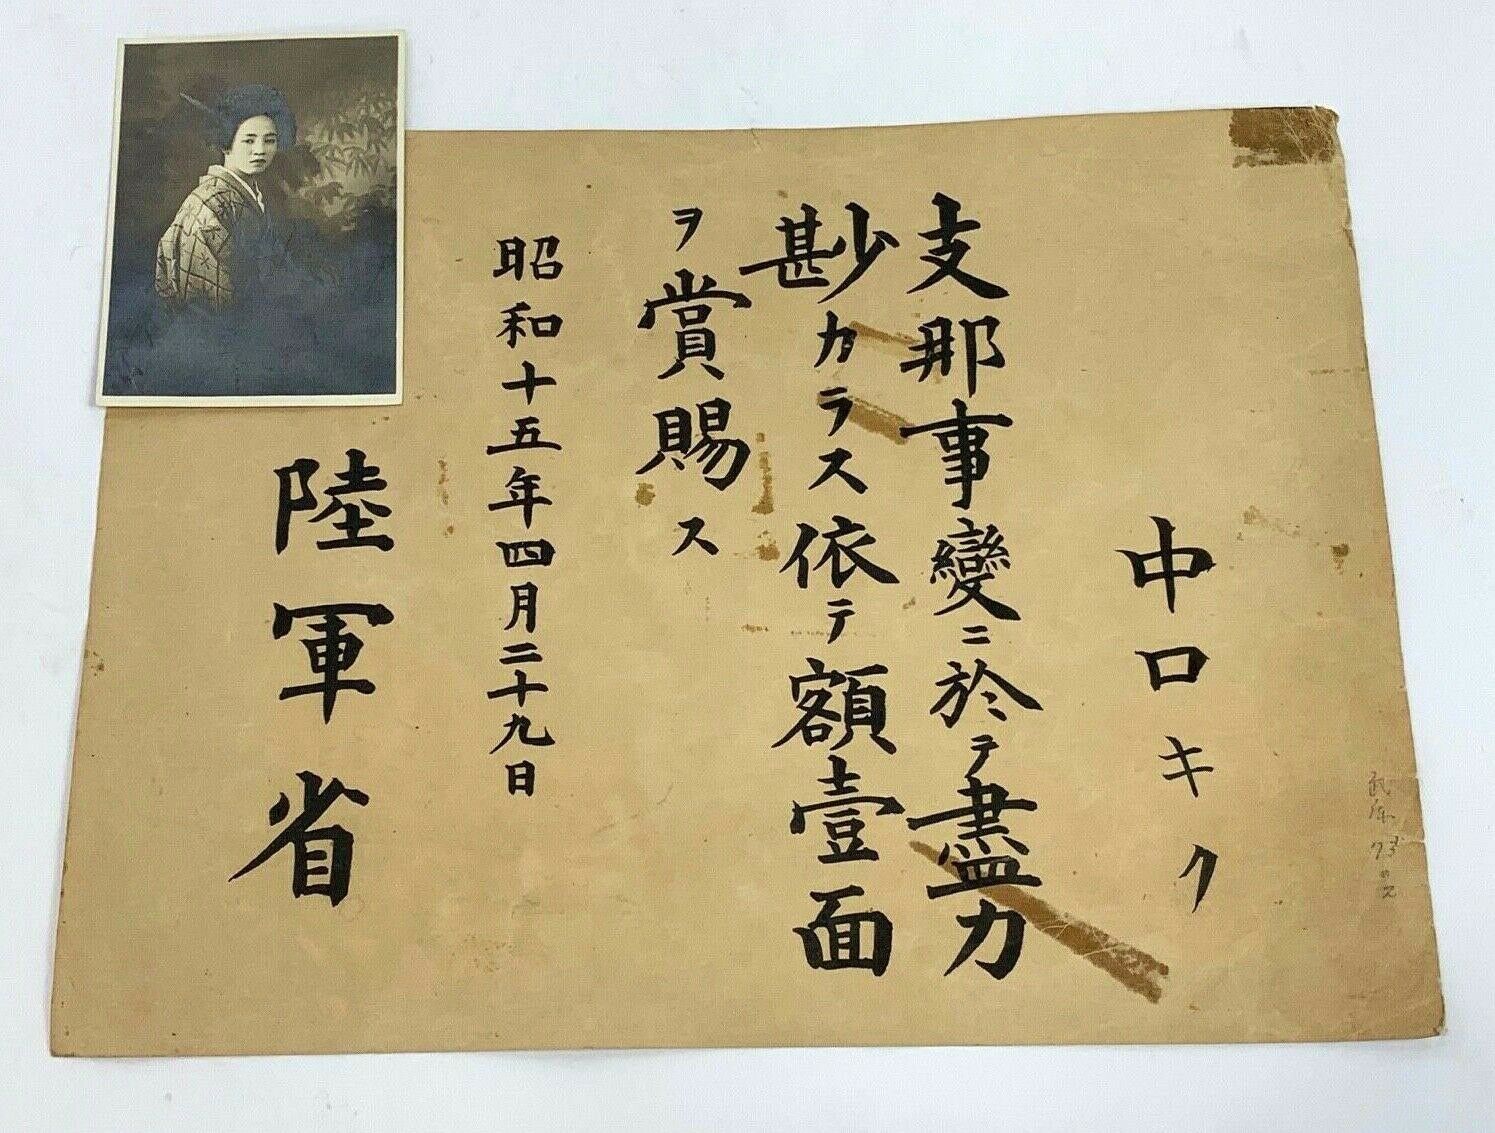 中口キク
支那事變ニ於テ盡力
尠カラス依テ額壹面
ヲ賞賜ス
昭和十五年四月二十九日
陸軍省